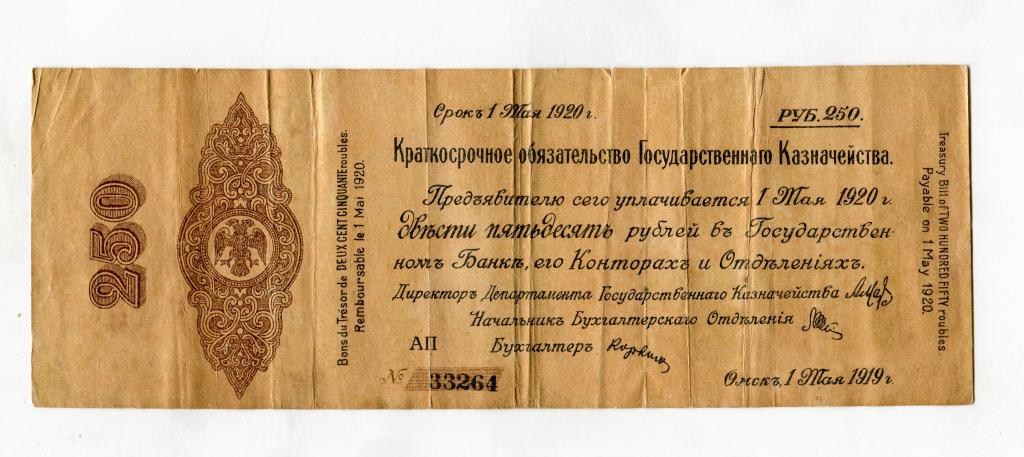 250
Bons du Trésor de DEUX CENT CINQUANTE roubles.
Remboursable le 1 Mai 1920.
Срокъ 1 Мая 1920 г.
РУБ. 250.
Краткосрочное обязательство Государственнаго Казначейства.
Предъявителю сего уплачивается 1 Мая 1920 г.
двѣсти пятьдесятъ рублей въ Государствен-
номъ Банкѣ, его Конторахъ и Отдѣленіяхъ.
Директоръ Департамента Государственнаго Казначейства
Начальникъ Бухгалтерскаго Отдѣленія
АП Бухгалтеръ
№ 33264
Омскъ, 1 Мая 1919 г.
Treasury Bill of TWO HUNDRED FIFTY roubles.
Payable on 1 May 1920.